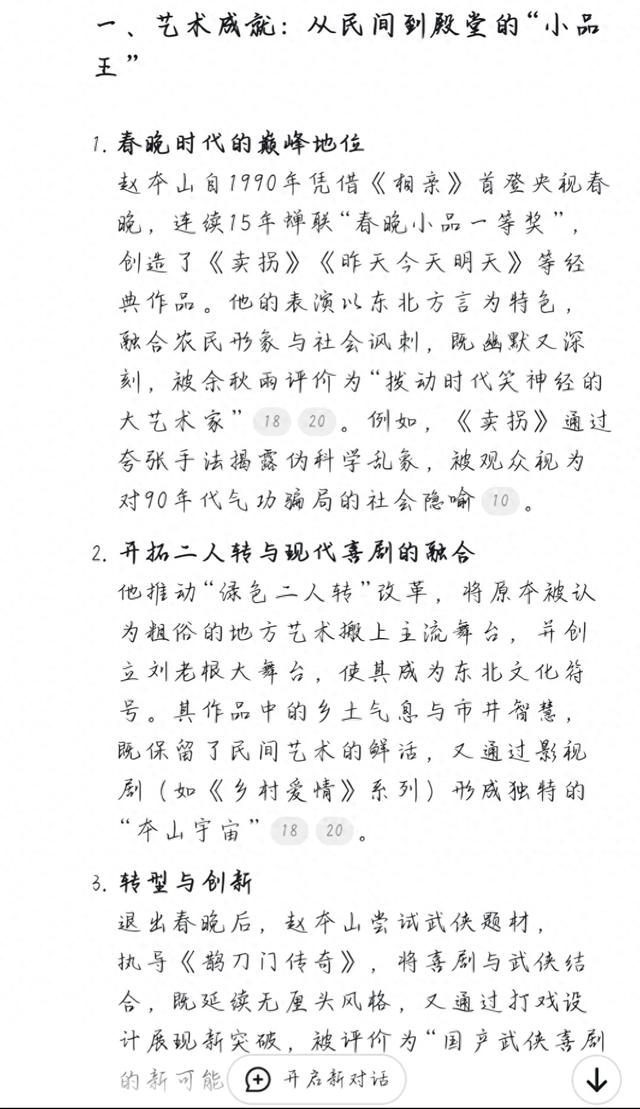 一、艺术成就：从民间到殿堂的“小品
王”
1. 春晚时代的巅峰地位
赵本山自1990年凭借《相亲》首登央视春
晚，连续15年蝉联“春晚小品一等奖”，
创造了《卖拐》《昨天今天明天》等经
典作品。他的表演以东北方言为特色，
融合农民形象与社会讽刺，既幽默又深
刻，被余秋雨评价为“拨动时代笑神经的
大艺术家” 18 20 。例如，《卖拐》通过
夸张手法揭露伪科学乱象，被观众视为
对90年代气功骗局的社会隐喻 10 。
2. 开拓二人转与现代喜剧的融合
他推动“绿色二人转”改革，将原本被认
为粗俗的地方艺术搬上主流舞台，并创
立刘老根大舞台，使其成为东北文化符
号。其作品中的乡土气息与市井智慧，
既保留了民间艺术的鲜活，又通过影视
剧（如《乡村爱情》系列）形成独特的
“本山宇宙” 18 20 。
3. 转型与创新
退出春晚后，赵本山尝试武侠题材，
执导《鹊刀门传奇》，将喜剧与武侠结
合，既延续无厘头风格，又通过打戏设
计展现新突破，被评价为“国产武侠喜剧
的新可能
开启新对话